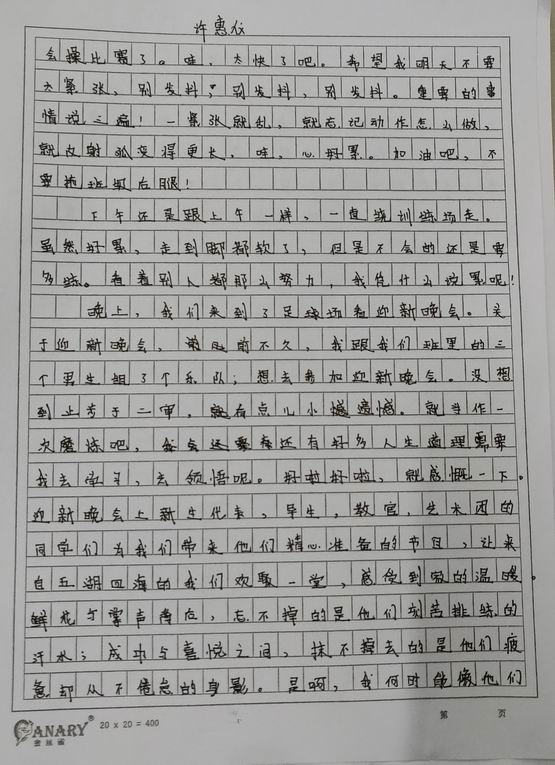 许惠仪
会操比赛了。哇，太快了吧。希望我明天不要
太紧张，别发抖；别发抖，别发抖。重要的事
情说三遍！一紧张就乱，就忘记动作怎么做，
就反射弧变得更长，哇，心好累。加油吧，不
要拖班级后腿！
下午还是跟上午一样，一直绕训练场走。
虽然好累，走到脚都软了，但是不会的还是要
多练。看着别人都那么努力，我凭什么说累呢！
晚上，我们来到了足球场看迎新晚会。关
于迎新晚会，前不久，我跟我们班里的三
个男生组了个乐队；想去参加迎新晚会。没想
到止步于二审，就有点儿小遗憾。就当作一
次磨练吧，还有好多人生道理需要
我去学习，去领悟呢。好啦好啦，就感慨一下。
迎新晚会上新生代表，导生，教官，艺术团的
同学们为我们带来他们精心准备的节目，让来
自五湖四海的我们欢聚一堂，感受到家的温暖。
鲜花与掌声背后，忘不掉的是他们刻苦排练的
汗水；成功与喜悦之间，抹不掉去的是他们疲
惫却从不倦怠的身影。是啊，我何时能像他们
CANARY®
金丝雀
20 x 20 = 400
第 页